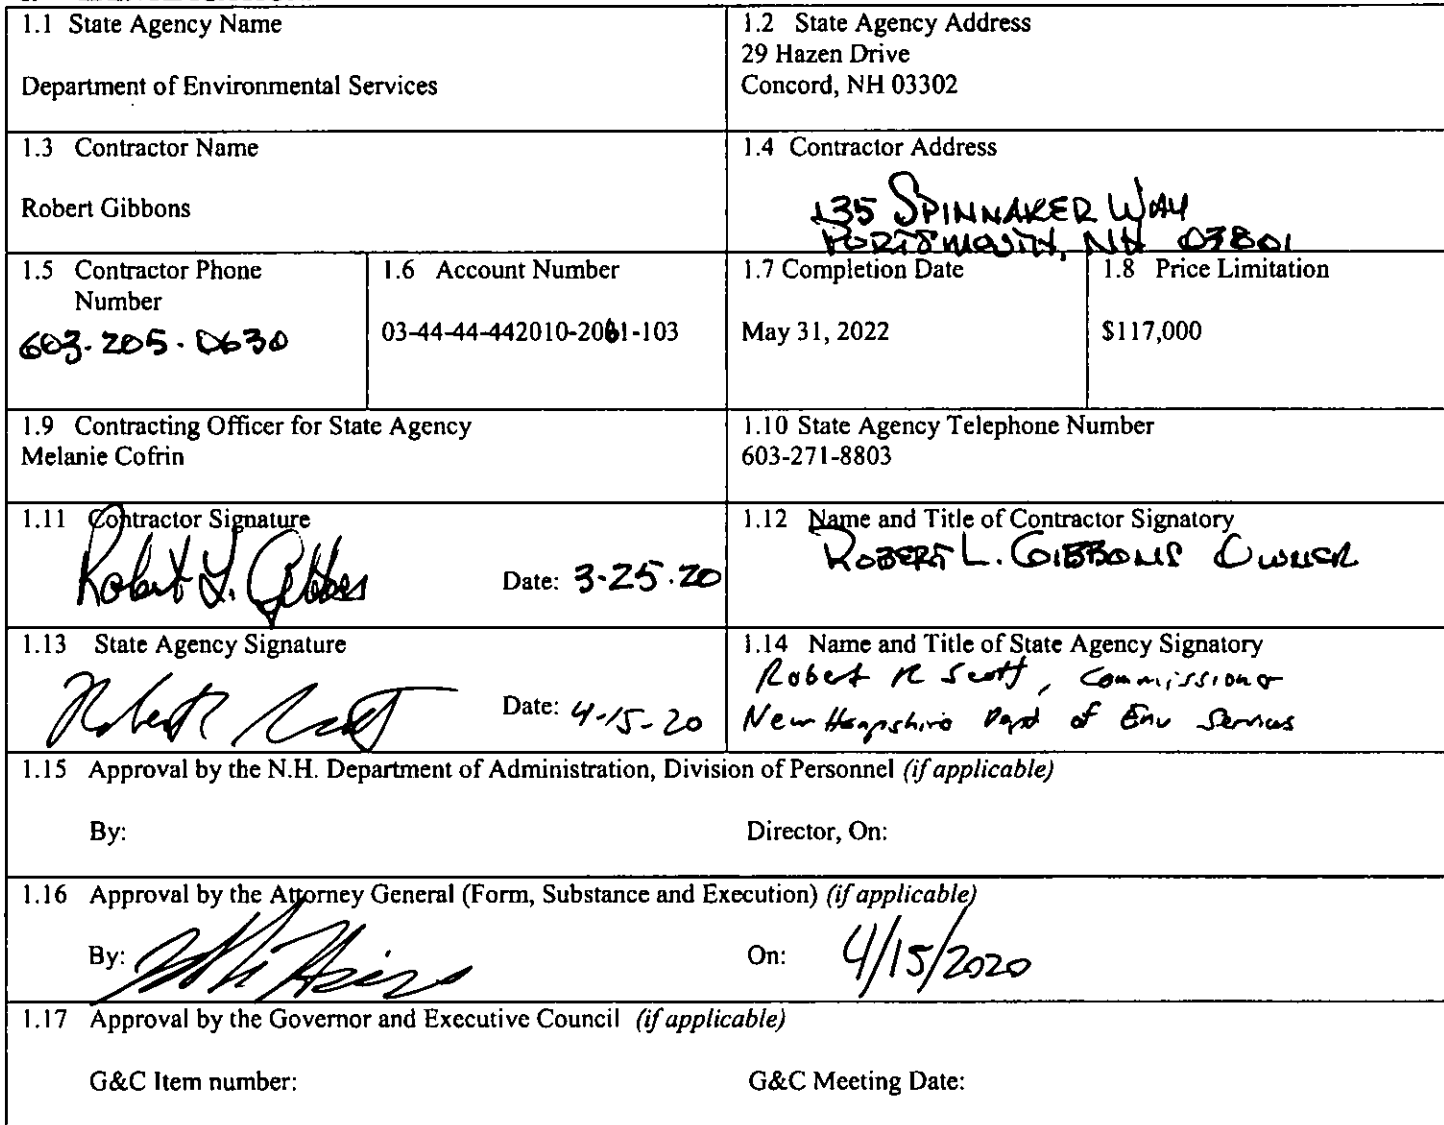 1.1 State Agency Name
Department of Environmental Services
1.2 State Agency Address
29 Hazen Drive
Concord, NH 03302
1.3 Contractor Name
Robert Gibbons
1.4 Contractor Address
135 SPINNAKER WAY
PORTSMOUTH, NH 03801
1.5 Contractor Phone
Number
603-205-0630
1.6 Account Number
03-44-44-442010-2061-103
1.7 Completion Date
May 31, 2022
1.8 Price Limitation
$117,000
1.9 Contracting Officer for State Agency
Melanie Cofrin
1.10 State Agency Telephone Number
603-271-8803
1.11 Contractor Signature
Robert L. Gibbons
Date: 3-25-20
1.12 Name and Title of Contractor Signatory
ROBERT L. GIBBONS OWNER
1.13 State Agency Signature
Robert R Scott
Date: 4-15-20
1.14 Name and Title of State Agency Signatory
Robert R Scott, Commissioner
New Hampshire Dept of Env Services
1.15 Approval by the N.H. Department of Administration, Division of Personnel (if applicable)
By: Director, On:
1.16 Approval by the Attorney General (Form, Substance and Execution) (if applicable)
By: On: 4/15/2020
1.17 Approval by the Governor and Executive Council (if applicable)
G&C Item number: G&C Meeting Date: